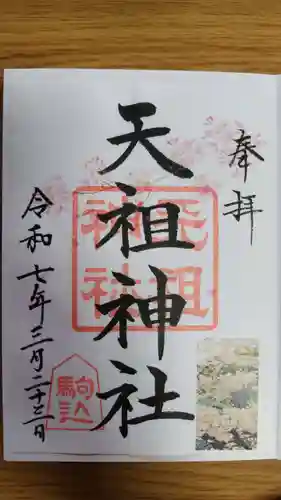 奉拝
天祖神社
天祖
神社
駒込
令和七年三月二十三日